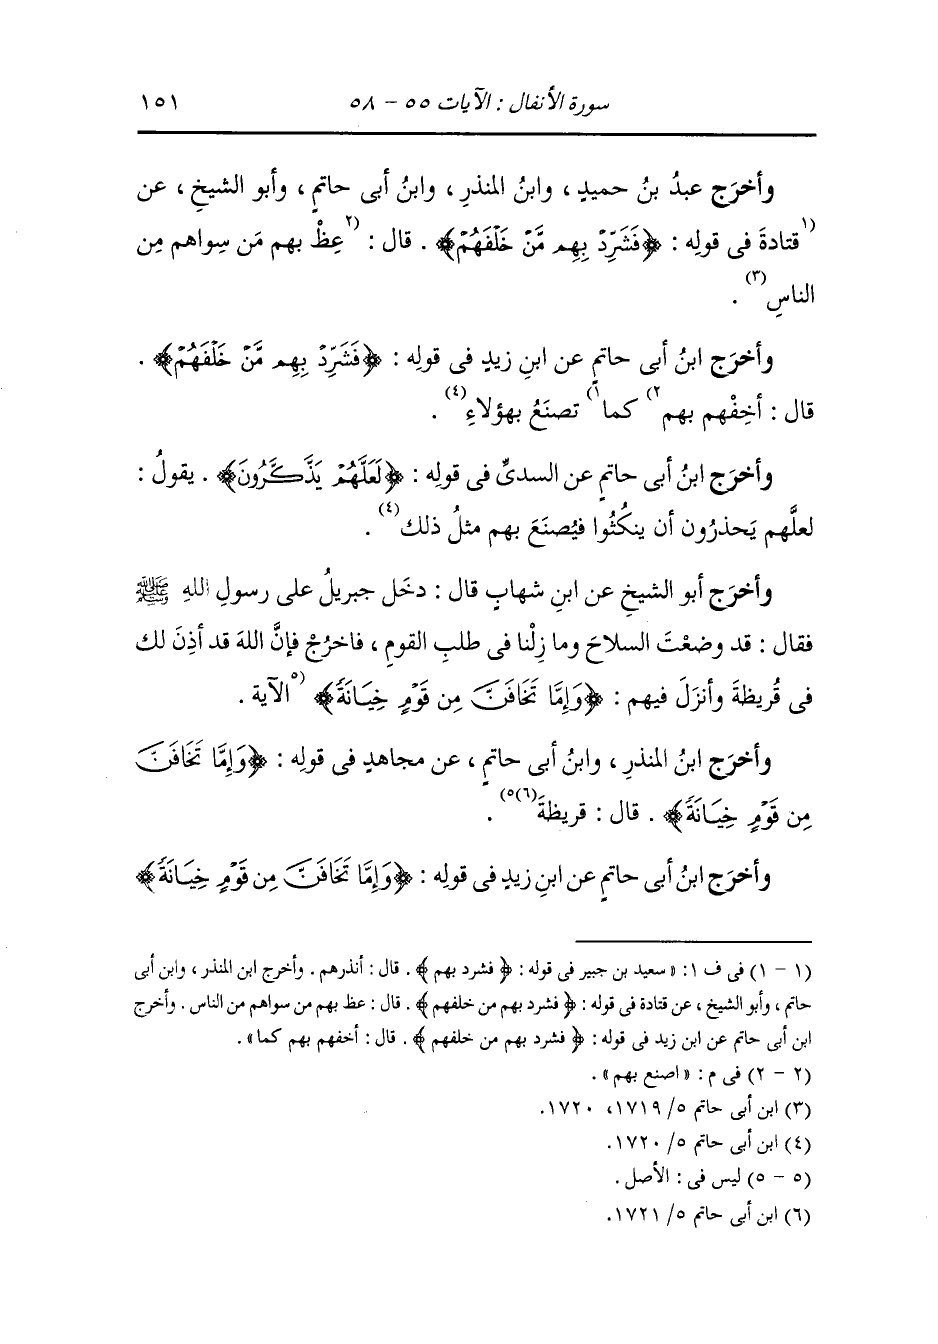 سورة الأنفال : الآيات ٥٥ - ٥٨ ١٥١
وأخرَج عبدُ بنُ حميدٍ ، وابنُ المنذرِ ، وابنُ أبى حاتمٍ ، وأبو الشيخِ ، عن
(١قتادةَ فى قولِه : ﴿فَشَرِّدْ بِهِم مَّنْ خَلْفَهُمْ﴾ . قال : (٢عِظْ بهم مَن سِواهم مِن
الناسِ(٣) .
وأخرَج ابنُ أبى حاتمٍ عن ابنِ زيدٍ فى قولِه : ﴿فَشَرِّدْ بِهِم مَّنْ خَلْفَهُمْ﴾ .
قال : أخِفْهم بهم٢) كما١) تصنَعُ بهؤلاءِ(٤) .
وأخرَج ابنُ أبى حاتمٍ عن السدىِّ فى قولِه : ﴿لَعَلَّهُمْ يَذَّكَّرُونَ﴾ . يقولُ :
لعلَّهم يَحذرُون أن ينكُثُوا فيُصنَعَ بهم مثلُ ذلك(٤) .
وأخرَج أبو الشيخِ عن ابنِ شهابٍ قال : دخَل جبريلُ على رسولِ اللهِ ﷺ
فقال : قد وضعْتَ السلاحَ وما زِلْنا فى طلبِ القومِ ، فاخرُجْ فإنَّ اللهَ قد أذِنَ لك
فى قُريظةَ وأنزلَ فيهم : ﴿وَإِمَّا تَخَافَنَّ مِن قَوْمٍ خِيَانَةً﴾ (٥الآية .
وأخرَج ابنُ المنذرِ ، وابنُ أبى حاتمٍ ، عن مجاهدٍ فى قولِه : ﴿وَإِمَّا تَخَافَنَّ
مِن قَوْمٍ خِيَانَةً﴾ . قال : قريظةَ(٦)٥) .
وأخرَج ابنُ أبى حاتمٍ عن ابنِ زيدٍ فى قولِه : ﴿وَإِمَّا تَخَافَنَّ مِن قَوْمٍ خِيَانَةً﴾
(١ - ١) فى ف ١: « سعيد بن جبير فى قوله : ﴿ فشرد بهم ﴾ . قال : أنذرهم . وأخرج ابن المنذر ، وابن أبى
حاتم ، وأبو الشيخ ، عن قتادة فى قوله : ﴿ فشرد بهم من خلفهم ﴾ . قال : عظ بهم من سواهم من الناس . وأخرج
ابن أبى حاتم عن ابن زيد فى قوله : ﴿ فشرد بهم من خلفهم ﴾ . قال : أخفهم بهم كما » .
(٢ - ٢) فى م : « اصنع بهم » .
(٣) ابن أبى حاتم ٥/ ١٧١٩، ١٧٢٠.
(٤) ابن أبى حاتم ٥/ ١٧٢٠.
(٥ - ٥) ليس فى : الأصل .
(٦) ابن أبى حاتم ٥/ ١٧٢١.